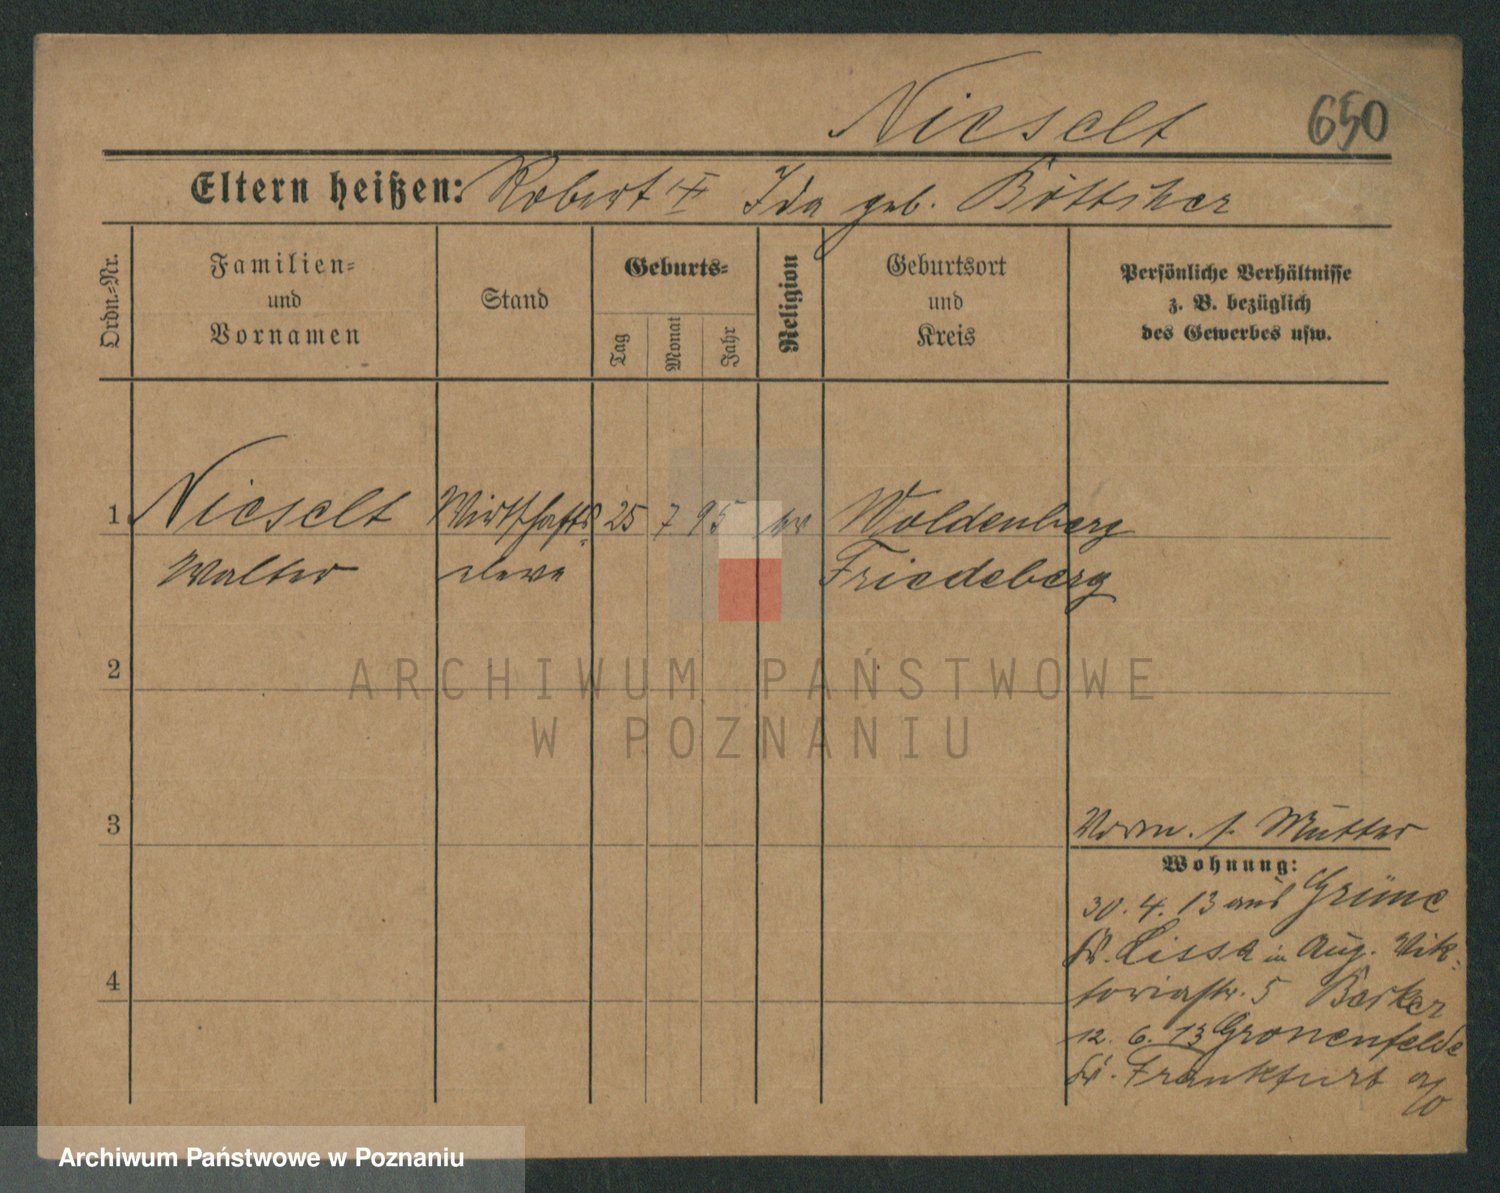 Nieselt 650
Eltern heißen: Robert † Ida geb. Böttcher
Ordn.-Nr.
Familien-
und
Vornamen
Stand
Geburts-
Tag
Monat
Jahr
Religion
Geburtsort
und
Kreis
Persönliche Verhältnisse
z. B. bezüglich
des Gewerbes usw.
1 Nieselt Wirtschafts 25 7 95 ev Woldenberg
Walter eleve Friedeberg
2
ARCHIWUM PAŃSTWOWE
W POZNANIU
3
Vorm. s. Mutter
Wohnung:
30. 4. 13 aus Grüne
Kr. Lissa in Aug. Vik-
4
toriastr. 5
12. 6. 13 Gronenfelde
Kr. Frankfurt a/O
Archiwum Państwowe w Poznaniu